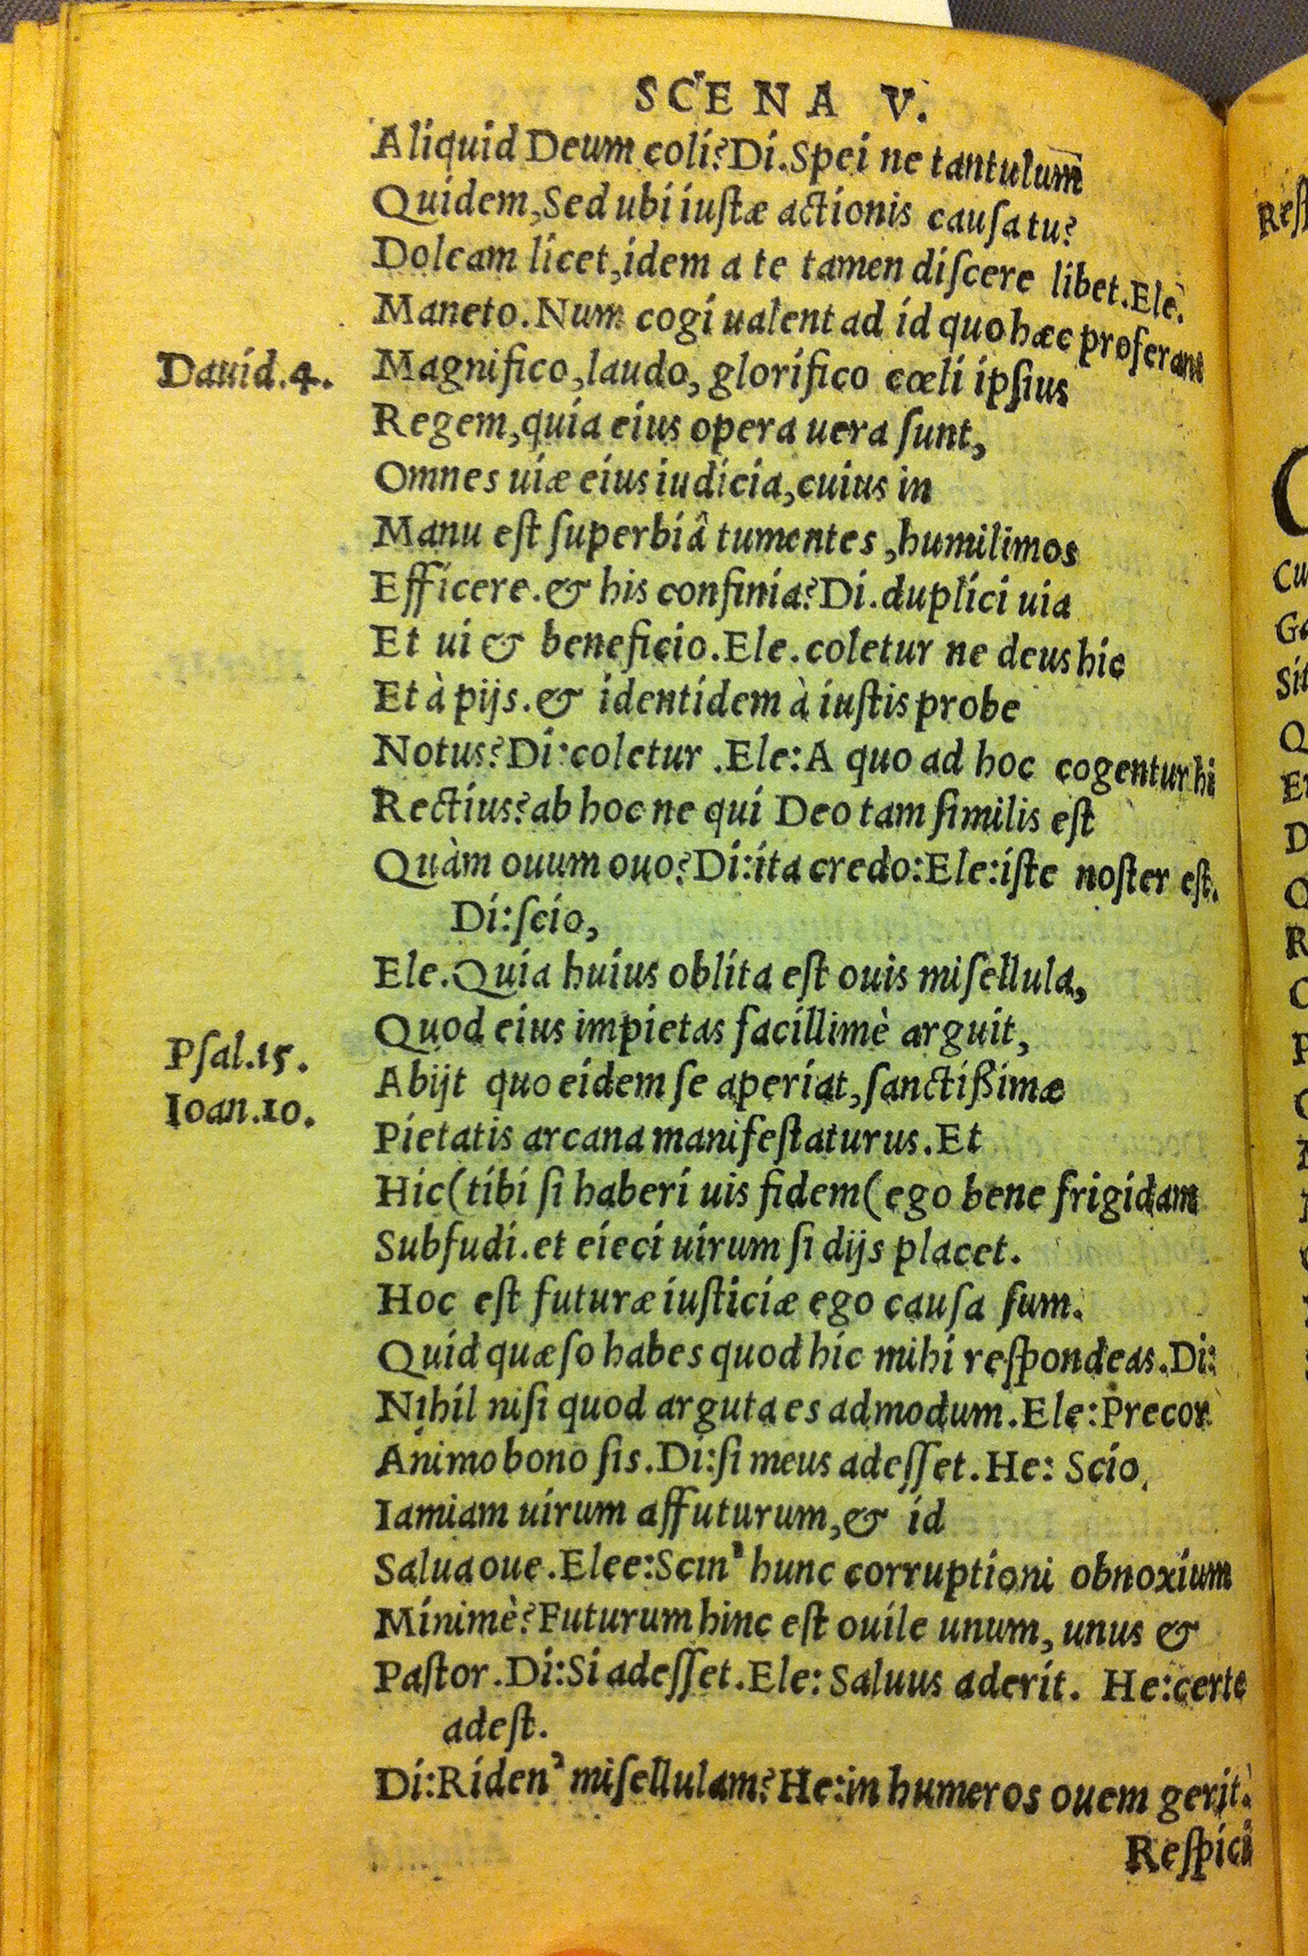 SCENA V.
Aliquid Deum coli? Di. Spei ne tantulum̄
Quidem, Sed ubi iustæ actionis causa tu?
Doleam licet, idem a te tamen discere libet. Ele.
Maneto. Num cogi ualent ad id quo hæc proferant
Dauid.4. Magnifico, laudo, glorifico cœli ipsius
Regem, quia eius opera uera sunt,
Omnes uiæ eius iudicia, cuius in
Manu est superbiâ tumentes, humilimos
Efficere. & his confinia? Di. duplici uia
Et ui & beneficio. Ele. coletur ne deus hic
Et à pijs. & identidem à iustis probe
Notus? Di: coletur. Ele: A quo ad hoc cogentur hi
Rectius? ab hoc ne qui Deo tam similis est
Quàm ouum ouo? Di: ita credo: Ele: iste noster est.
Di: scio,
Ele. Quia huius oblita est ouis misellula,
Quod eius impietas facillimè arguit,
Psal.15. Abijt quo eidem se aperiat, sanctißimæ
Ioan.10. Pietatis arcana manifestaturus. Et
Hic (tibi si haberi uis fidem( ego bene frigidam
Subfudi. et eieci uirum si dijs placet.
Hoc est futuræ iusticiæ ego causa sum.
Quid quæso habes quod hic mihi respondeas. Di:
Nihil nisi quod arguta es admodum. Ele: Precor
Animo bono sis. Di: si meus adesset. He: Scio,
Iamiam uirum affuturum, & id
Salua oue. Elee: Scin' hunc corruptioni obnoxium
Minimè? Futurum hinc est ouile unum, unus &
Pastor. Di: Si adesset. Ele: Saluus aderit. He: certe
adest.
Di: Riden' misellulam? He: in humeros ouem gerit.
Respici